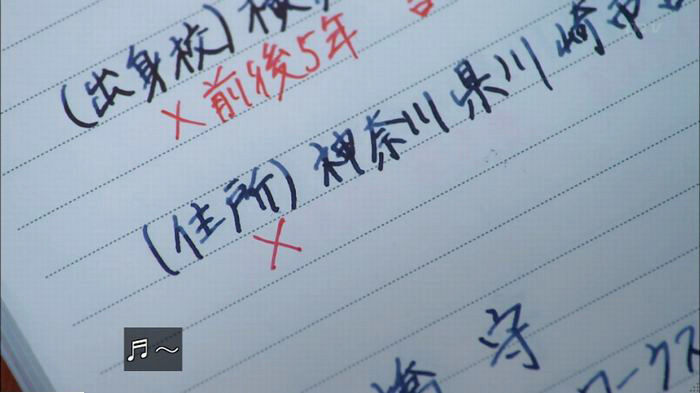 (出身校)横
×前後5年
(住所)神奈川県川崎市
×
橋 守
ワークス
♬～